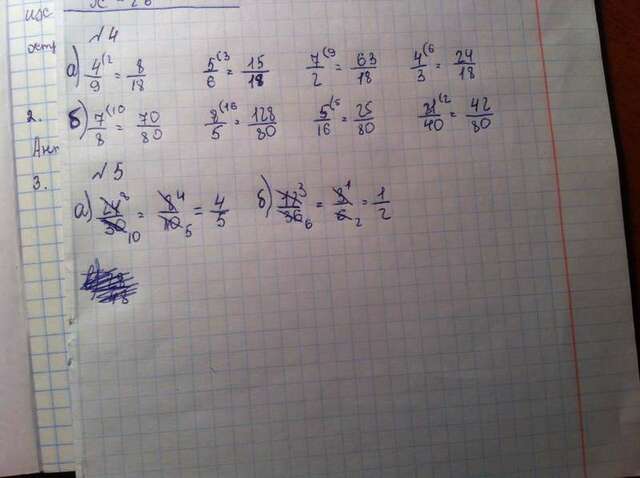 № 4
а) 4/9 (2 = 8/18 5/6 (3 = 15/18 7/2 (9 = 63/18 4/3 (6 = 24/18
б) 7/8 (10 = 70/80 8/5 (16 = 128/80 5/16 (5 = 25/80 21/40 (2 = 42/80
№ 5
а) 24 8/30 10 = 8 4/10 5 = 4/5 б) 3/6 = 3 1/6 2 = 1/2
2.
3.